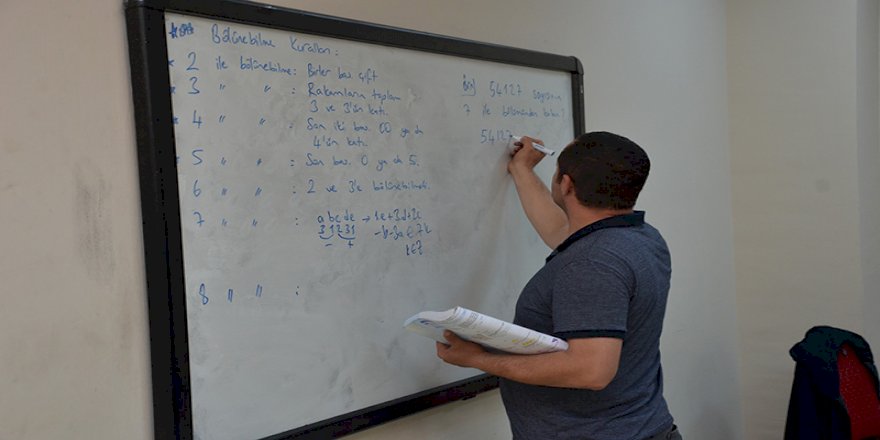 Bölünebilme Kuralları:
2 ile bölünebilme: Birler bas. çift
3 " " : Rakamların toplamı
3 ve 3'ün katı.
4 " " : Son iki bas. 00 ya da
4'ün katı.
5 " " : Son bas. 0 ya da 5.
6 " " : 2 ve 3'e bölünebilmeli.
7 " " : abcde → 1e+3d+2c
31231 -b-3a ∈ 7k
- + k∈Z
8 " " :
54127 sayısının
7 ile bölümünden kalan?
54127